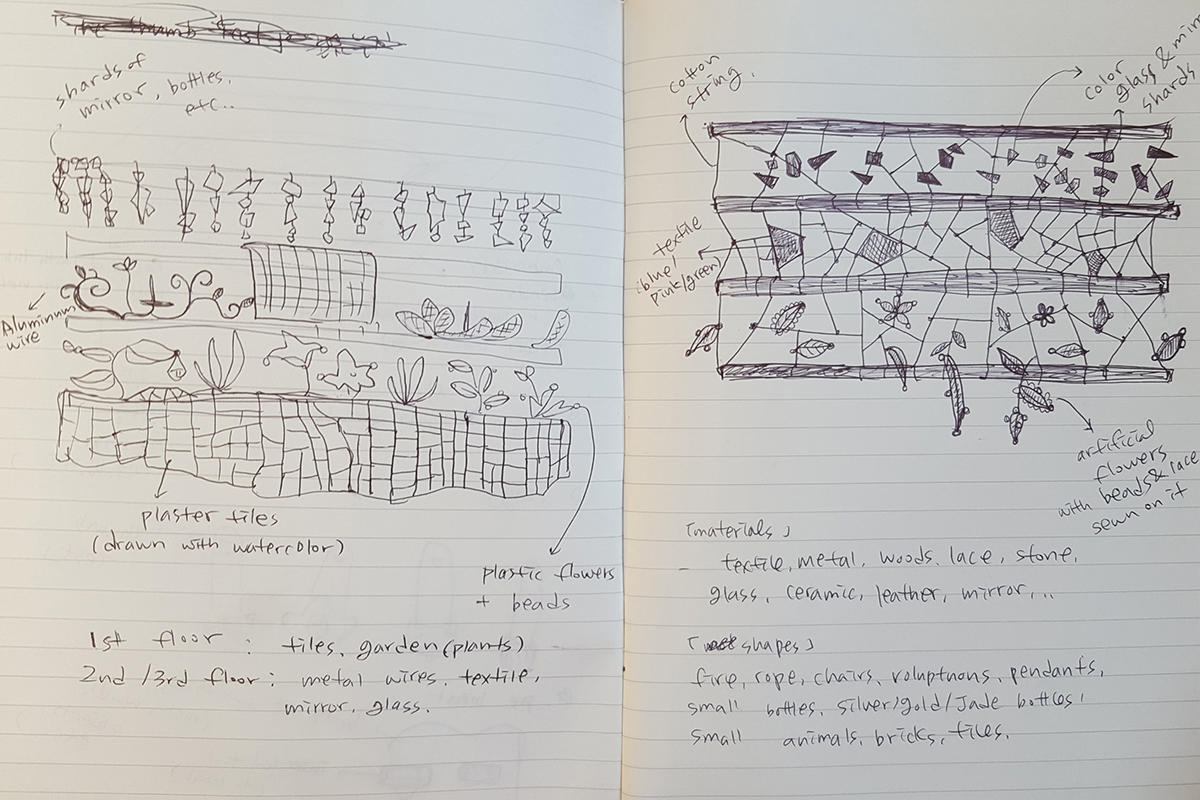 The thumb
shards of
mirror, bottles,
etc..
Aluminum
wire
plaster tiles
(drawn with watercolor)
plastic flowers
+ beads
1st floor : tiles, garden (plants)
2nd /3rd floor : metal wires, textile,
mirror, glass.
cotton
string.
color
glass & min
shards
textile
(blue/
pink/green)
artificial
flowers
with beads & lace
sewn on it
「materials」
- textile, metal, woods, lace, stone,
glass, ceramic, leather, mirror, ..
「shapes」
fire, rope, chairs, voluptuous, pendants,
small bottles, silver/gold/Jade bottles,
small animals, bricks, tiles.